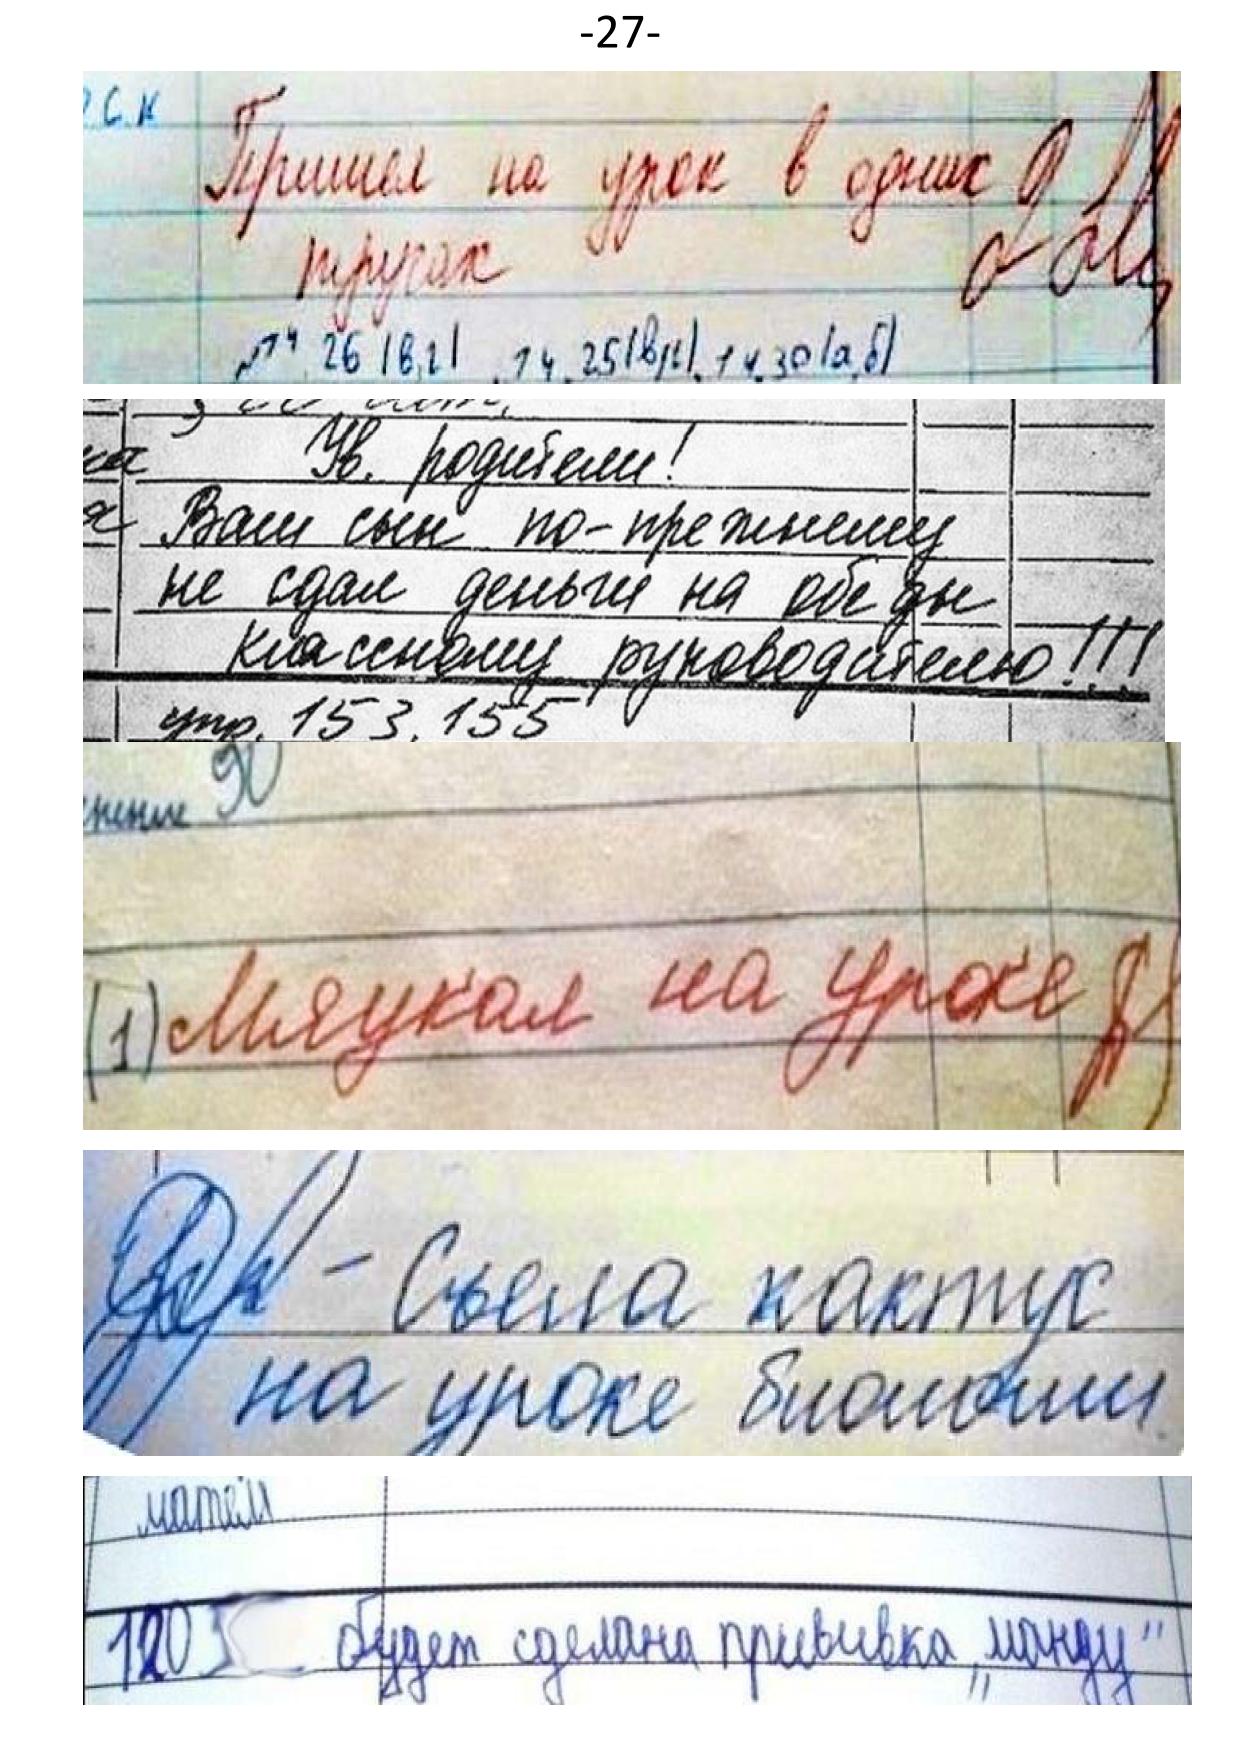 -27-
Р.С.К
Пришел на урок в одних
трусах
14 26 (в,г), 14.25(в,г), 14.30(а,б)
Ув. родители!
Ваш сын по-прежнему
не сдал деньги на обеды
классному руководителю!!!
упр. 153, 155
нение 90
(1) Мяукал на уроке
- Съела кактус
на уроке биологии.
матем
120 будет сделана прививка „манду"